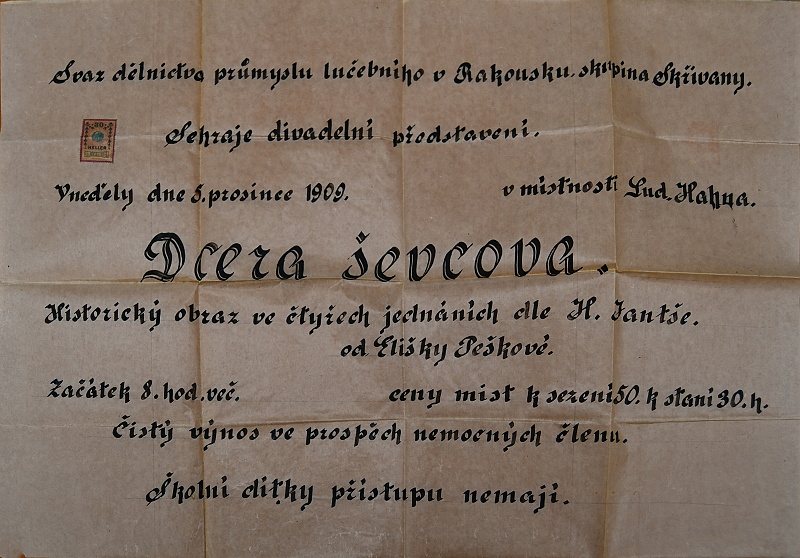 Svaz dělnictva průmyslu lučebního v Rakousku. skupina Skřivany.
Sehraje divadelní představení.
HELLER
Vneděly dne 5. prosince 1909. v místnosti Lud. Hahna.
Dcera ševcova.
Historický obraz ve čtyřech jednáních dle H. Jantše.
od Elišky Peškové.
Začátek 8. hod. več. ceny míst k sezení 50. k stání 30. h.
Čistý výnos ve prospěch nemocných členu.
Školní dítky přístupu nemají.